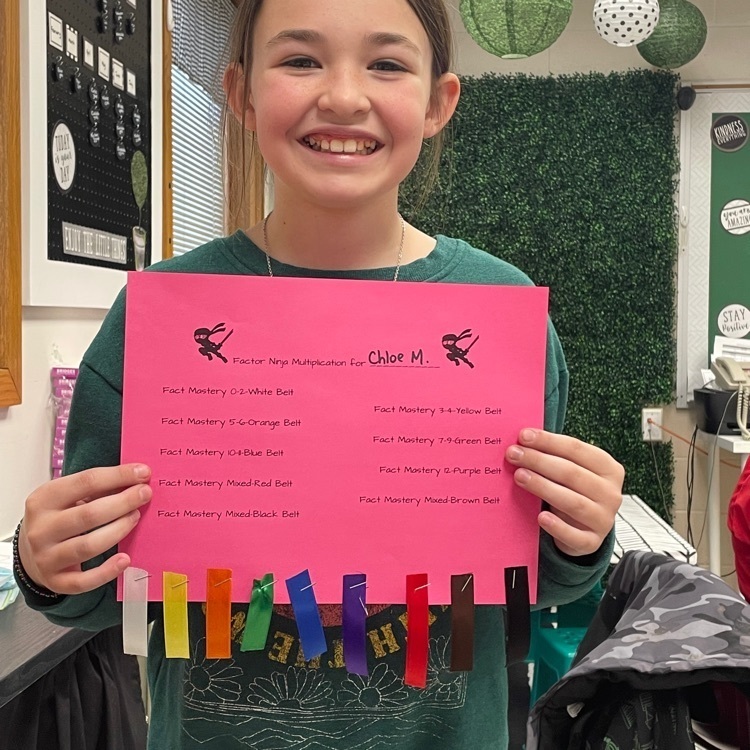 TODAY
is your
DAY
ENJOY THE LITTLE THINGS
KINDNESS
you are
AMAZING
STAY
Positive
Factor Ninja Multiplication for Chloe M.
Fact Mastery 0-2-White Belt
Fact Mastery 3-4-Yellow Belt
Fact Mastery 5-6-Orange Belt
Fact Mastery 7-9-Green Belt
Fact Mastery 10-11-Blue Belt
Fact Mastery 12-Purple Belt
Fact Mastery Mixed-Red Belt
Fact Mastery Mixed-Brown Belt
Fact Mastery Mixed-Black Belt
IN THE